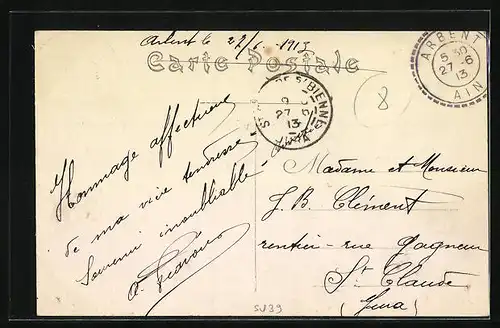 Arbent le 27/6 1913
Carte Postale
ARBENT
5 30
27 -6
13
AIN
8
BIENNE
27
13
Hommage affectueux
de ma vive tendresse
Souvenir inoubliable
Madame et Monsieur
J. B. Clément
rentier - rue Gagneur
St Claude
(Jura)
5139